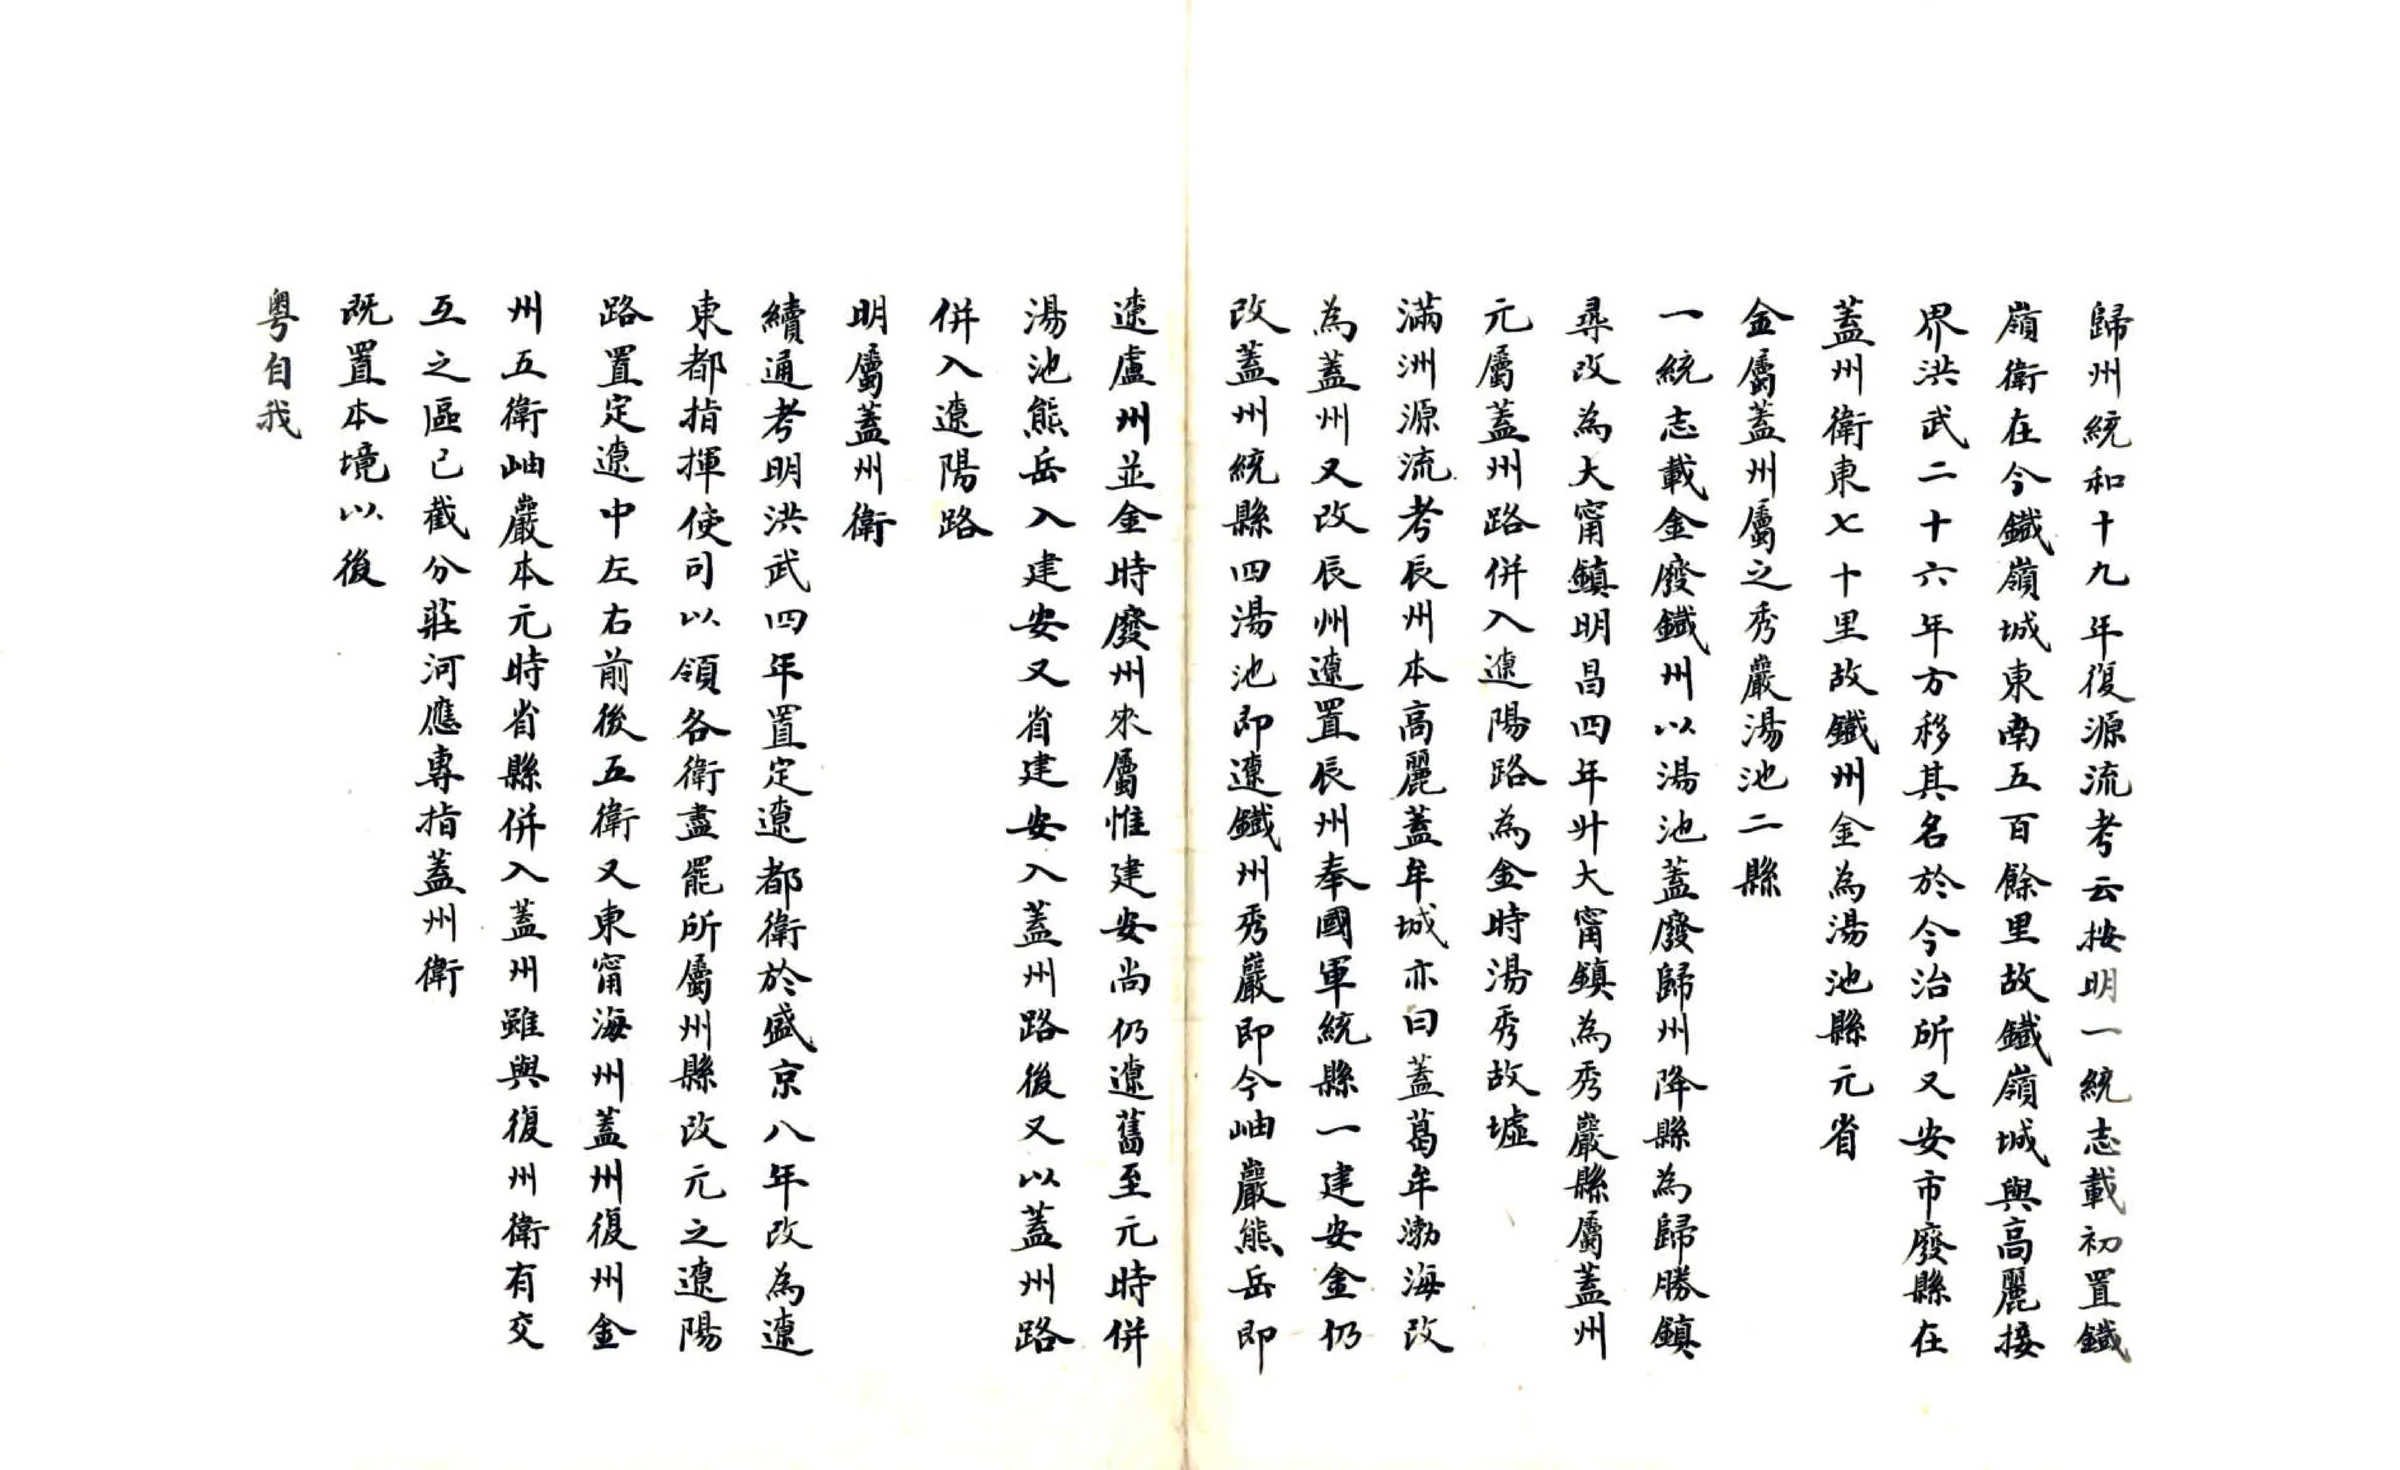 歸州統和十九年復源流考云按明一統志載初置鐵
嶺衛在今鐵嶺城東南五百餘里故鐵嶺城與高麗接
界洪武二十六年方移其名於今治所又安市廢縣在
蓋州衛東七十里故鐵州金為湯池縣元省
金屬蓋州屬之秀巖湯池二縣
一統志載金廢鐵州以湯池蓋廢歸州降縣為歸勝鎮
尋改為大甯鎮明昌四年廾大甯鎮為秀巖縣屬蓋州
元屬蓋州路併入遼陽路為金時湯秀故墟
滿洲源流考辰州本高麗蓋牟城亦曰蓋葛牟渤海改
為蓋州又改辰州遼置辰州奉國軍統縣一建安金仍
改蓋州統縣四湯池即遼鐵州秀巖即今岫巖熊岳即
遼盧州並金時廢州來屬惟建安尚仍遼舊至元時併
湯池熊岳入建安又省建安入蓋州路後又以蓋州路
併入遼陽路
明屬蓋州衛
續通考明洪武四年置定遼都衛於盛京八年改為遼
東都指揮使司以領各衛盡罷所屬州縣改元之遼陽
路置定遼中左右前後五衛又東甯海州蓋州復州金
州五衛岫巖本元時省縣併入蓋州雖與復州衛有交
互之區已截分莊河應專指蓋州衛
既置本境以後
粵自我